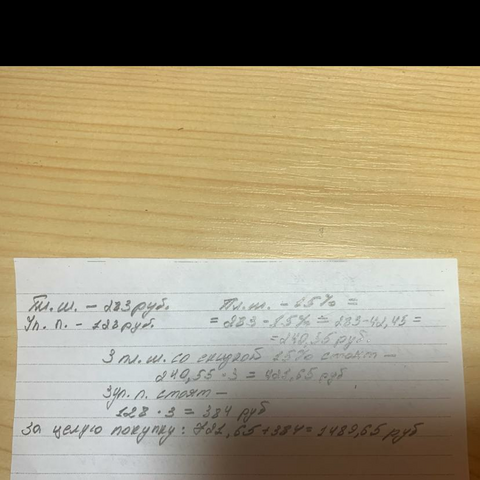 Пл.ш. – 283 руб.
Уп. п. – 128 руб.
Пл.ш. – 15% =
= 283 - 15% = 283-42,45 =
= 240,55 руб.
3 пл.ш. со скидкой 15% стоят –
240,55 · 3 = 721,65 руб
3 уп. п. стоят –
128 · 3 = 384 руб
За целую покупку: 721,65+384=1489,65 руб